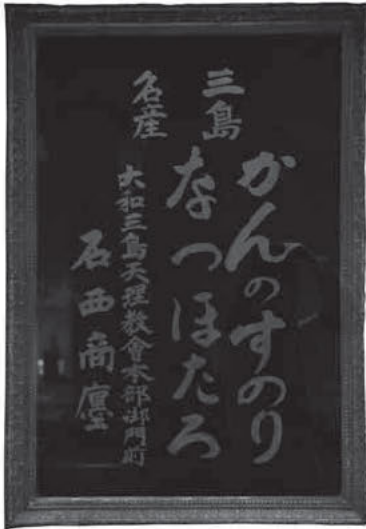 三島
名産
かんのすのり
なつほたろ
大和三島天理教會本部御門前
石西商廛